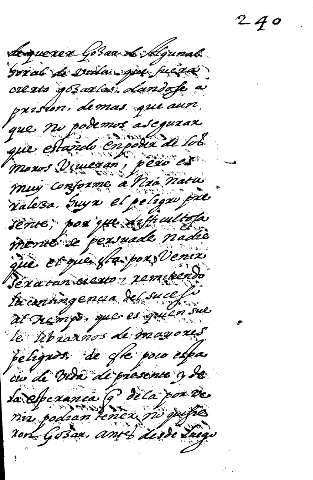 240
de querer Gozar de Algunas
oras de Vida que fuera
cierto gozarlas dandose a
prision: demas que aun
que no podemos asegurar
que estando en poder de los
moros Viuieran, pero es
muy conforme a Nra natu
raleza huyr el peligro pre
sente, por que dificultosa
mente se persuade nadie
que el que esta por Venir
sera tan cierto, remitiendo
la contingencia del suceso
Al tiempo, que es quien sue
le librarnos de mayores
peligros, de este poco espa
cio de Vida de presente y de
la esperança q de la por ve
nir podian tener no quisie
ron Gozar, antes desde luego